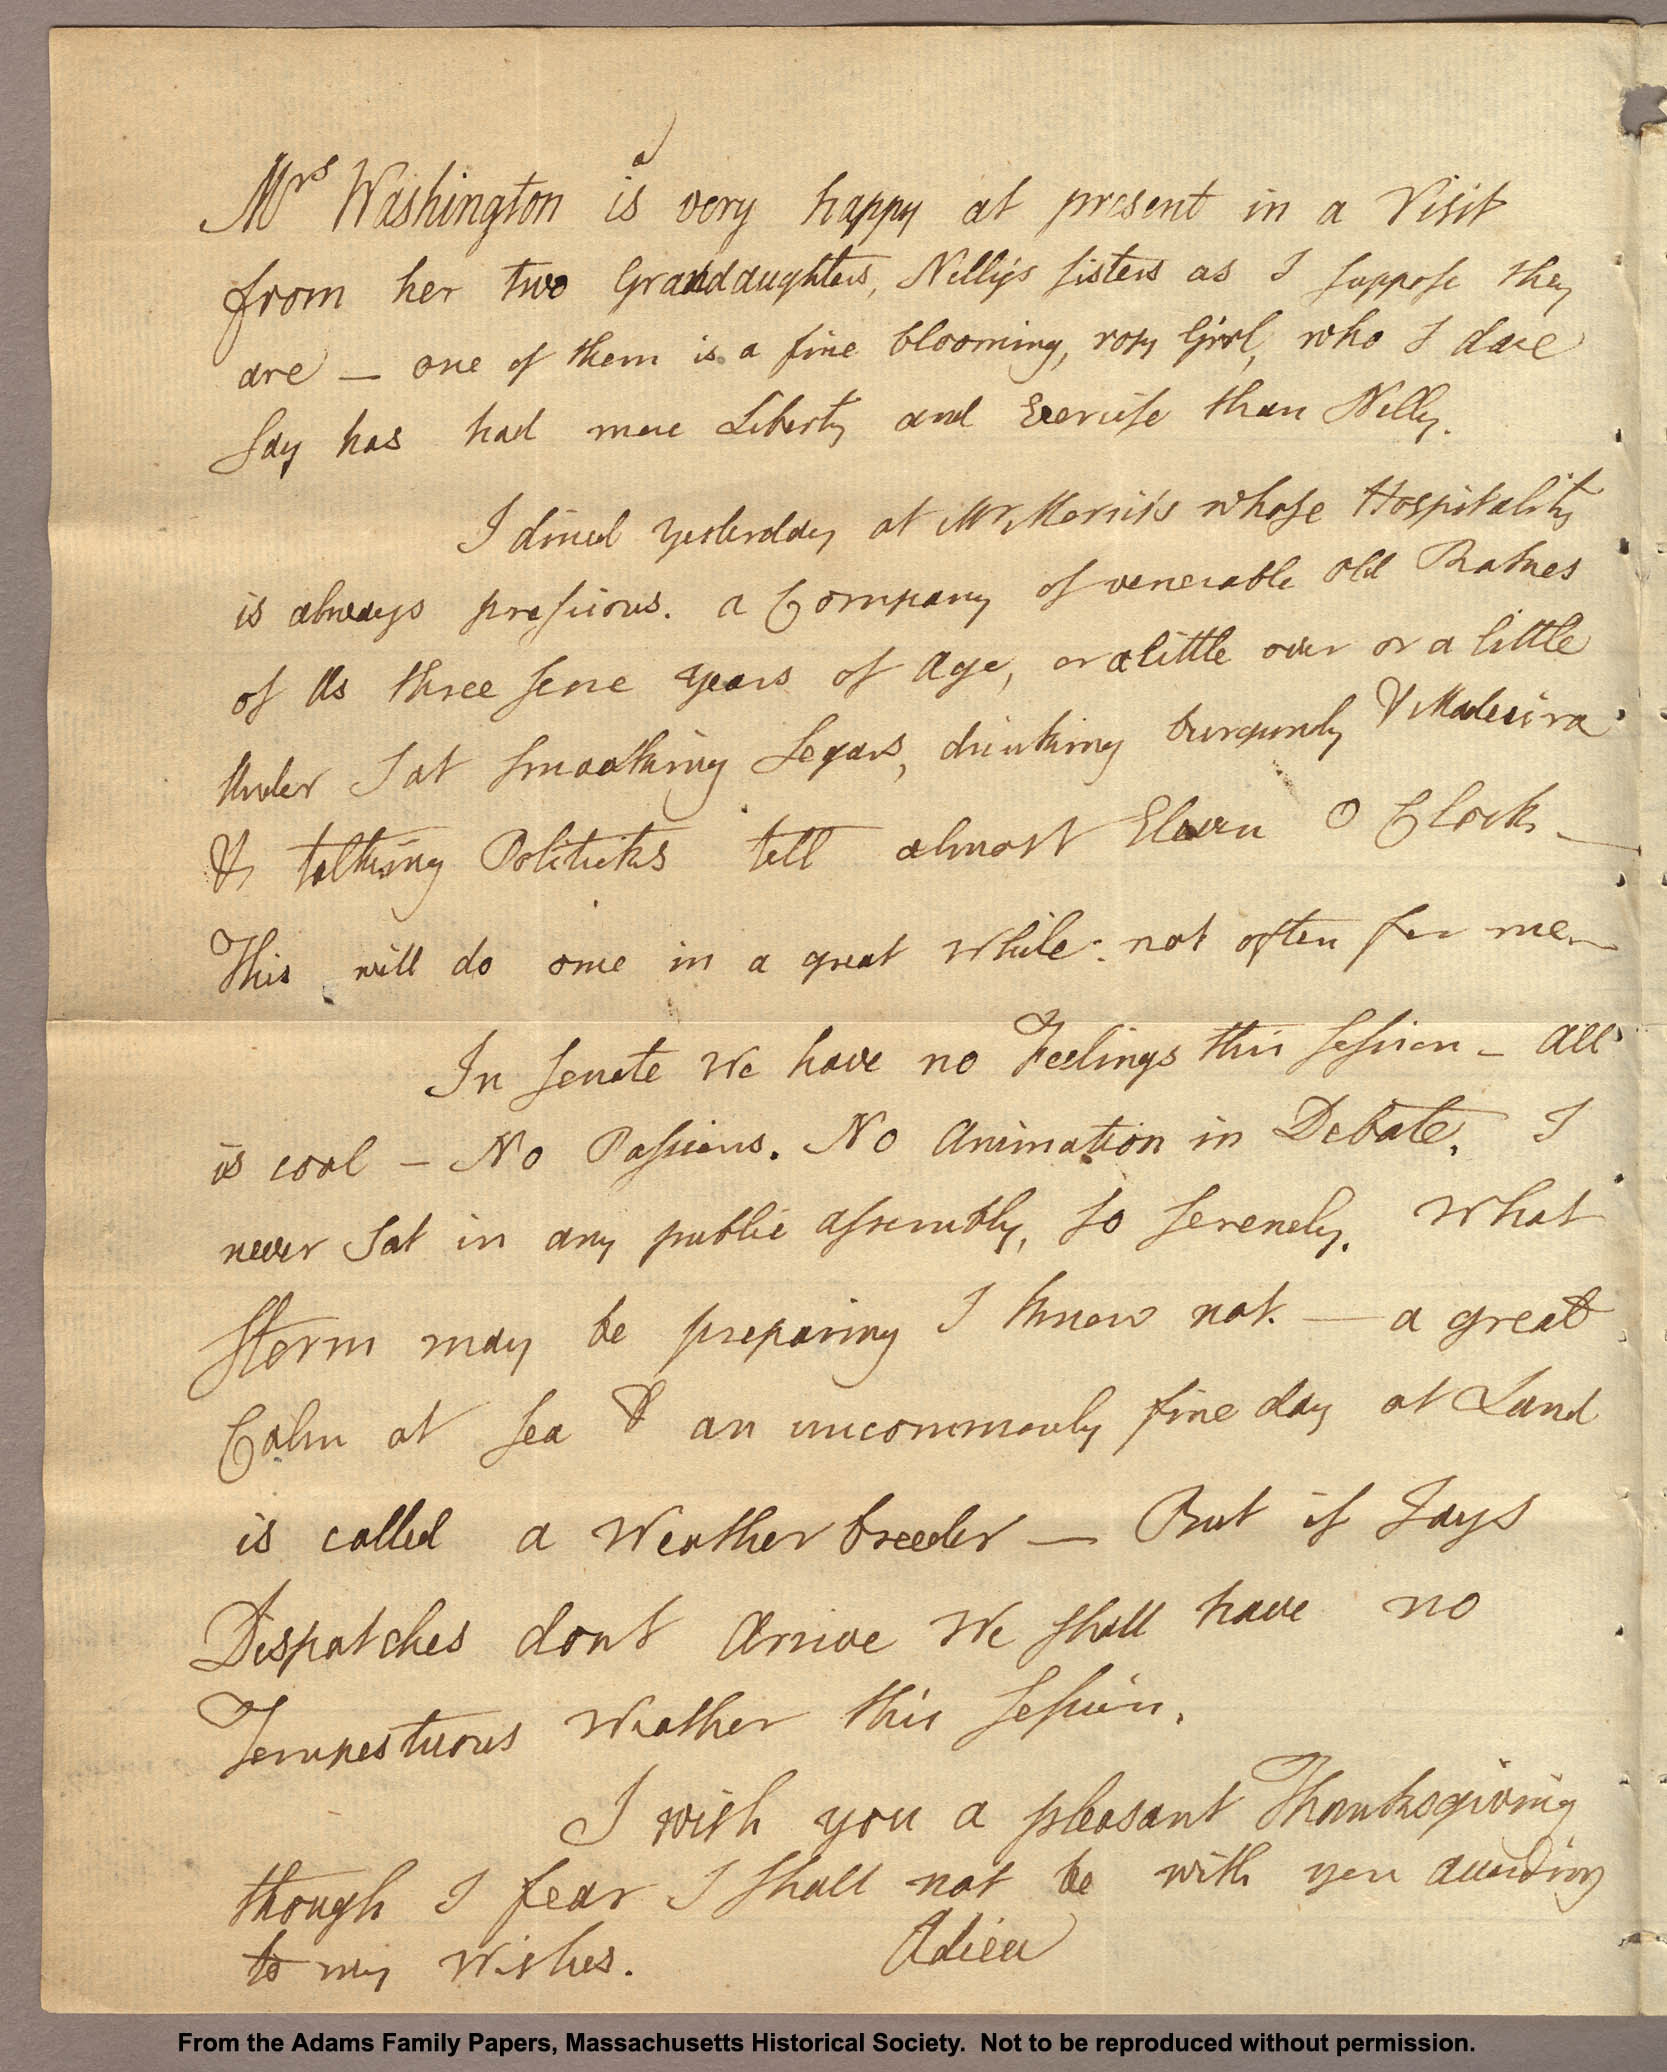 Mrs Washington is very happy at present in a Visit
from her two Granddaughters, Nelly's sisters as I suppose they
are — one of them is a fine blooming, rosy Girl, who I dare
say has had more Liberty and Exercise than Nelly.
I dined yesterday at Mr Morris's whose Hospitality
is always precious. a Company of venerable old Rakes
of Us three score years of Age, or a little over or a little
Under Sat smoaking Segars, drinking burgundy & Madeira
& talking Politicks till almost Eleven O Clock —
This will do once in a great While: not often for me.
In Senate We have no Feelings this session — All
is cool — No Passions. No Animation in Debate. I
never Sat in any public assembly, so serenely. What
Storm may be preparing I know not. — a great
Calm at sea & an uncommonly fine day at Land
is called a Weather breeder — But if Jays
Dispatches dont Arrive We shall have no
Tempestuous Weather this session.
I wish you a pleasant Thanksgiving
though I fear I shall not be with you according
to my Wishes. Adieu
From the Adams Family Papers, Massachusetts Historical Society. Not to be reproduced without permission.